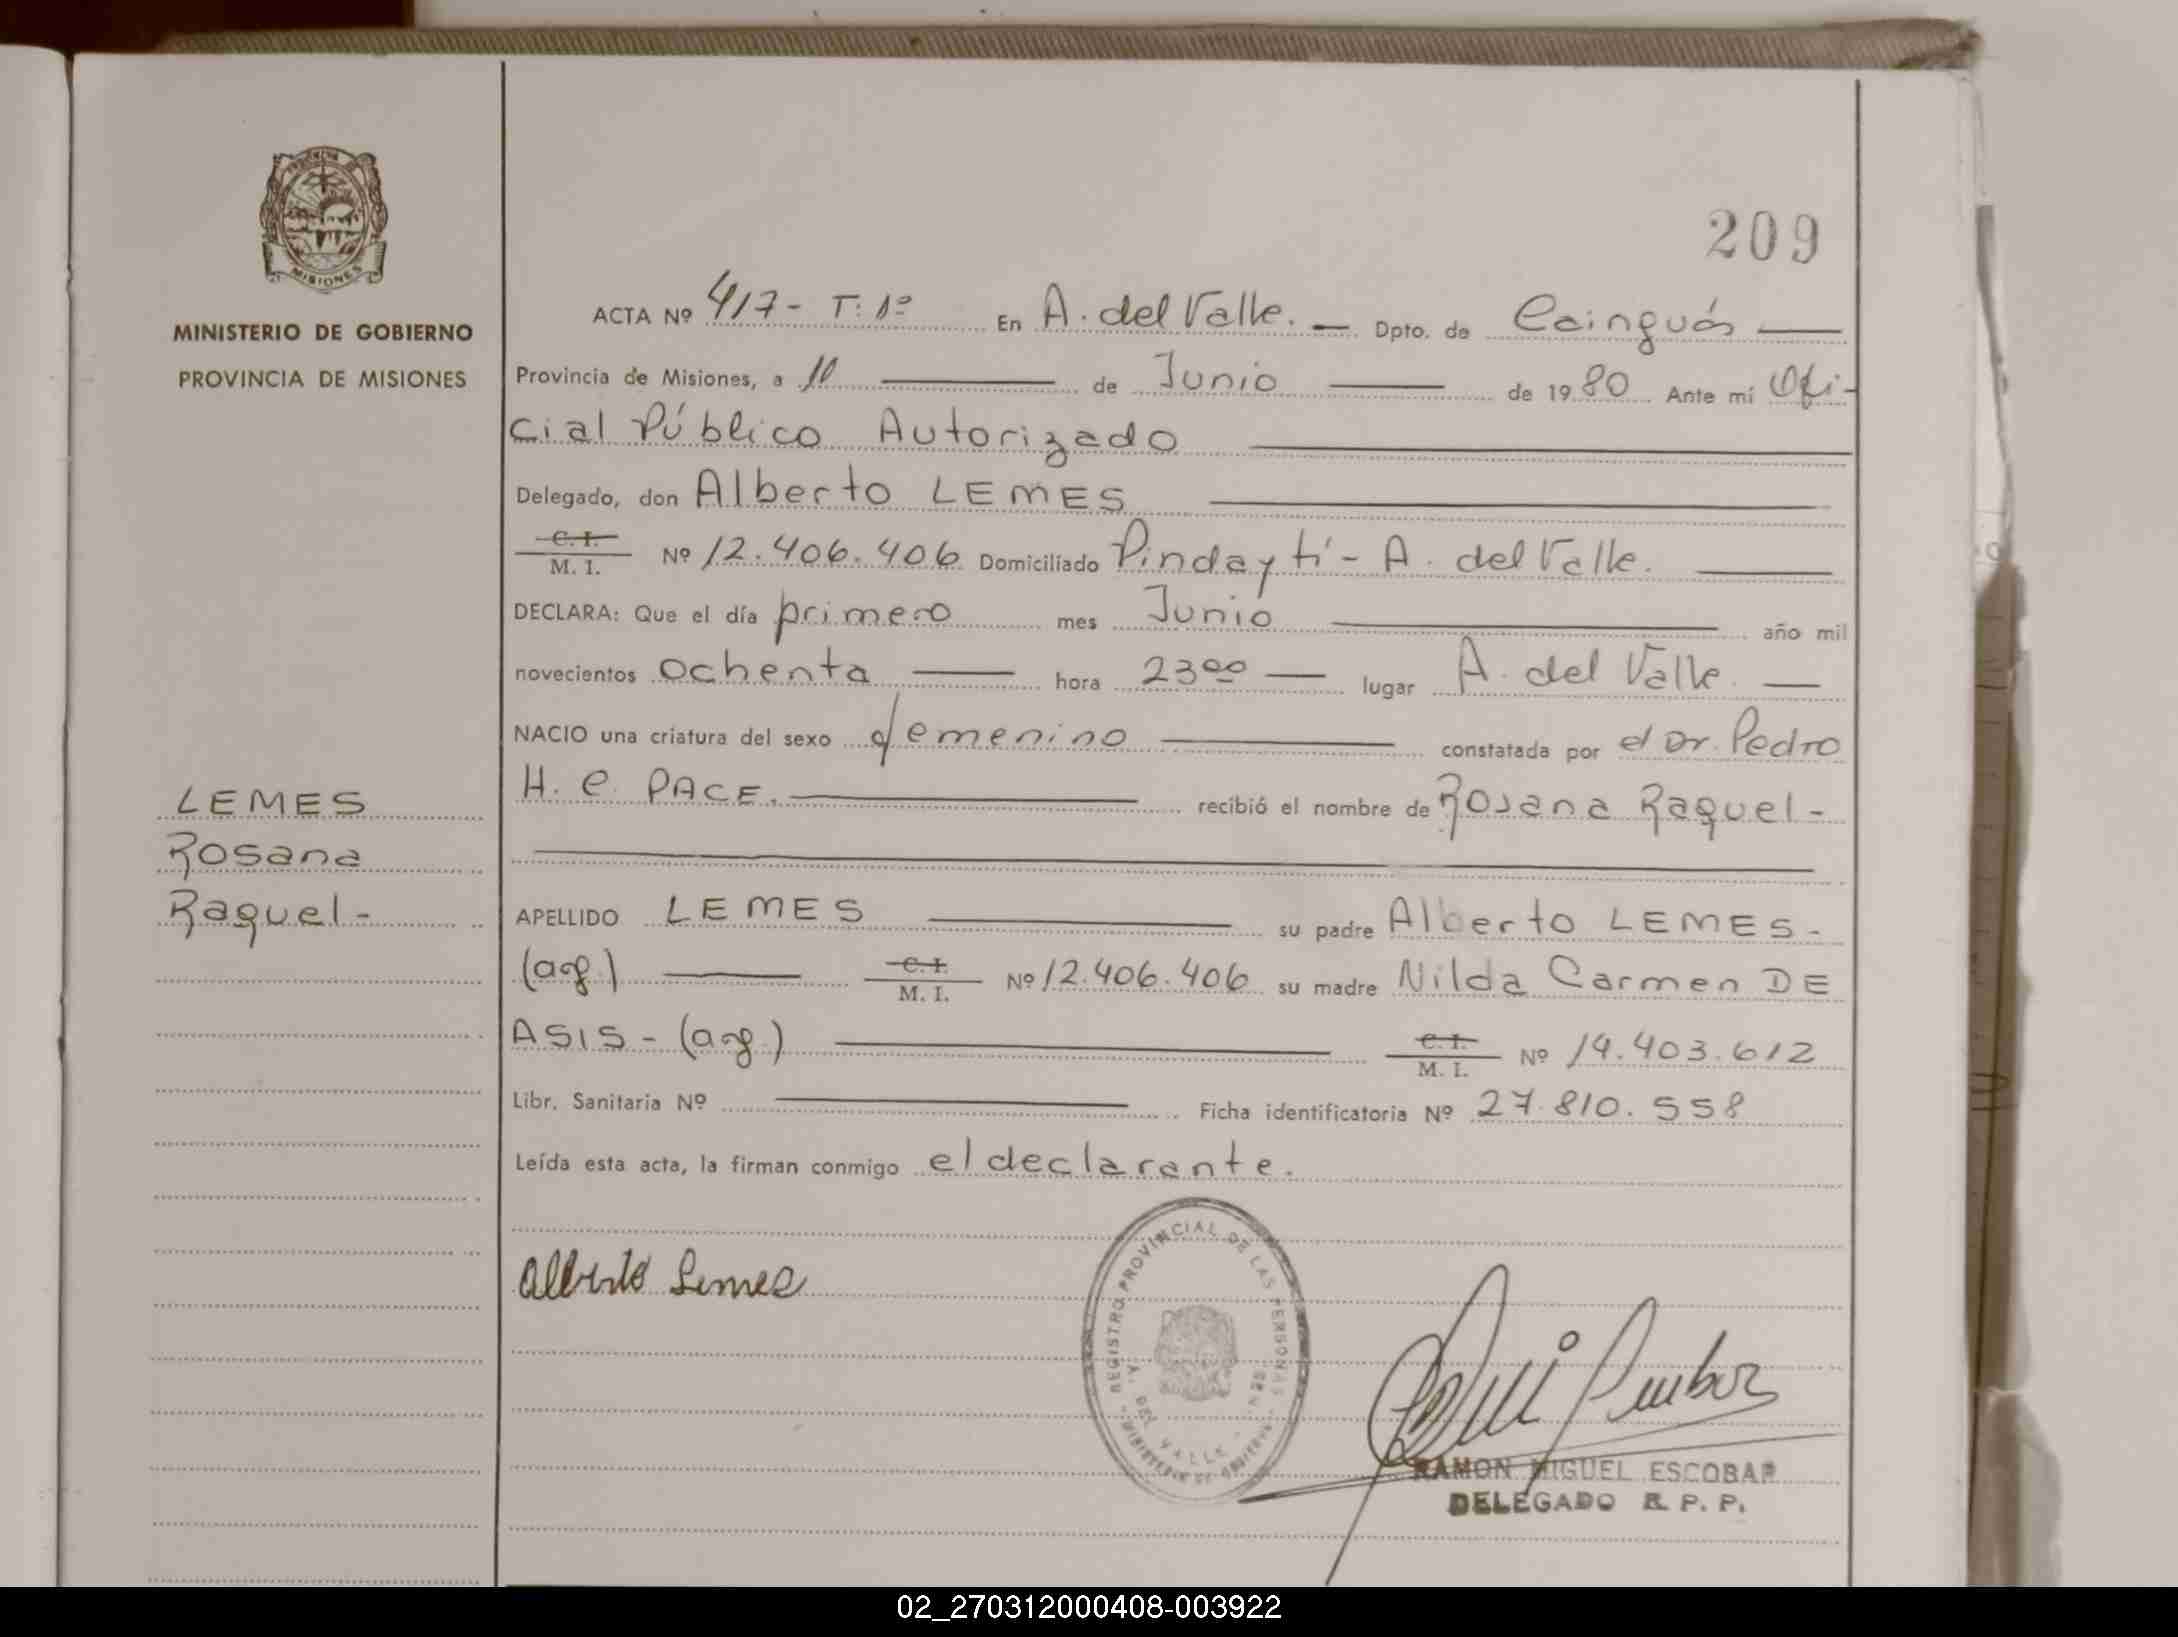 209
MISIONES
MINISTERIO DE GOBIERNO
PROVINCIA DE MISIONES
ACTA Nº 417- T: 1º En A. del Valle. Dpto. de Cainguás
Provincia de Misiones, a 10 de Junio de 1980 Ante mí Ofi-
cial Público Autorizado
Delegado, don Alberto LEMES
C. I.
M. I. Nº 12.406.406 Domiciliado Pindaytí - A. del Valle.
DECLARA: Que el día primero mes Junio año mil
novecientos ochenta hora 23⁰⁰ lugar A. del Valle.
NACIO una criatura del sexo femenino constatada por el Dr. Pedro
H. C. PACE. recibió el nombre de Rosana Raquel-
LEMES
Rosana
Raquel-
APELLIDO LEMES su padre Alberto LEMES-
(arg.) C. I. M. I. Nº 12.406.406 su madre Nilda Carmen DE
ASIS - (arg.) C. I. M. I. Nº 14.403.612
Libr. Sanitaria Nº Ficha identificatoria Nº 27.810.558
Leída esta acta, la firman conmigo el declarante.
Alberto Lemes
REGISTRO PROVINCIAL DE LAS PERSONAS
A. DEL VALLE
MINISTERIO DE GOBIERNO
RAMON MIGUEL ESCOBAR
DELEGADO R. P. P.
02_270312000408-003922